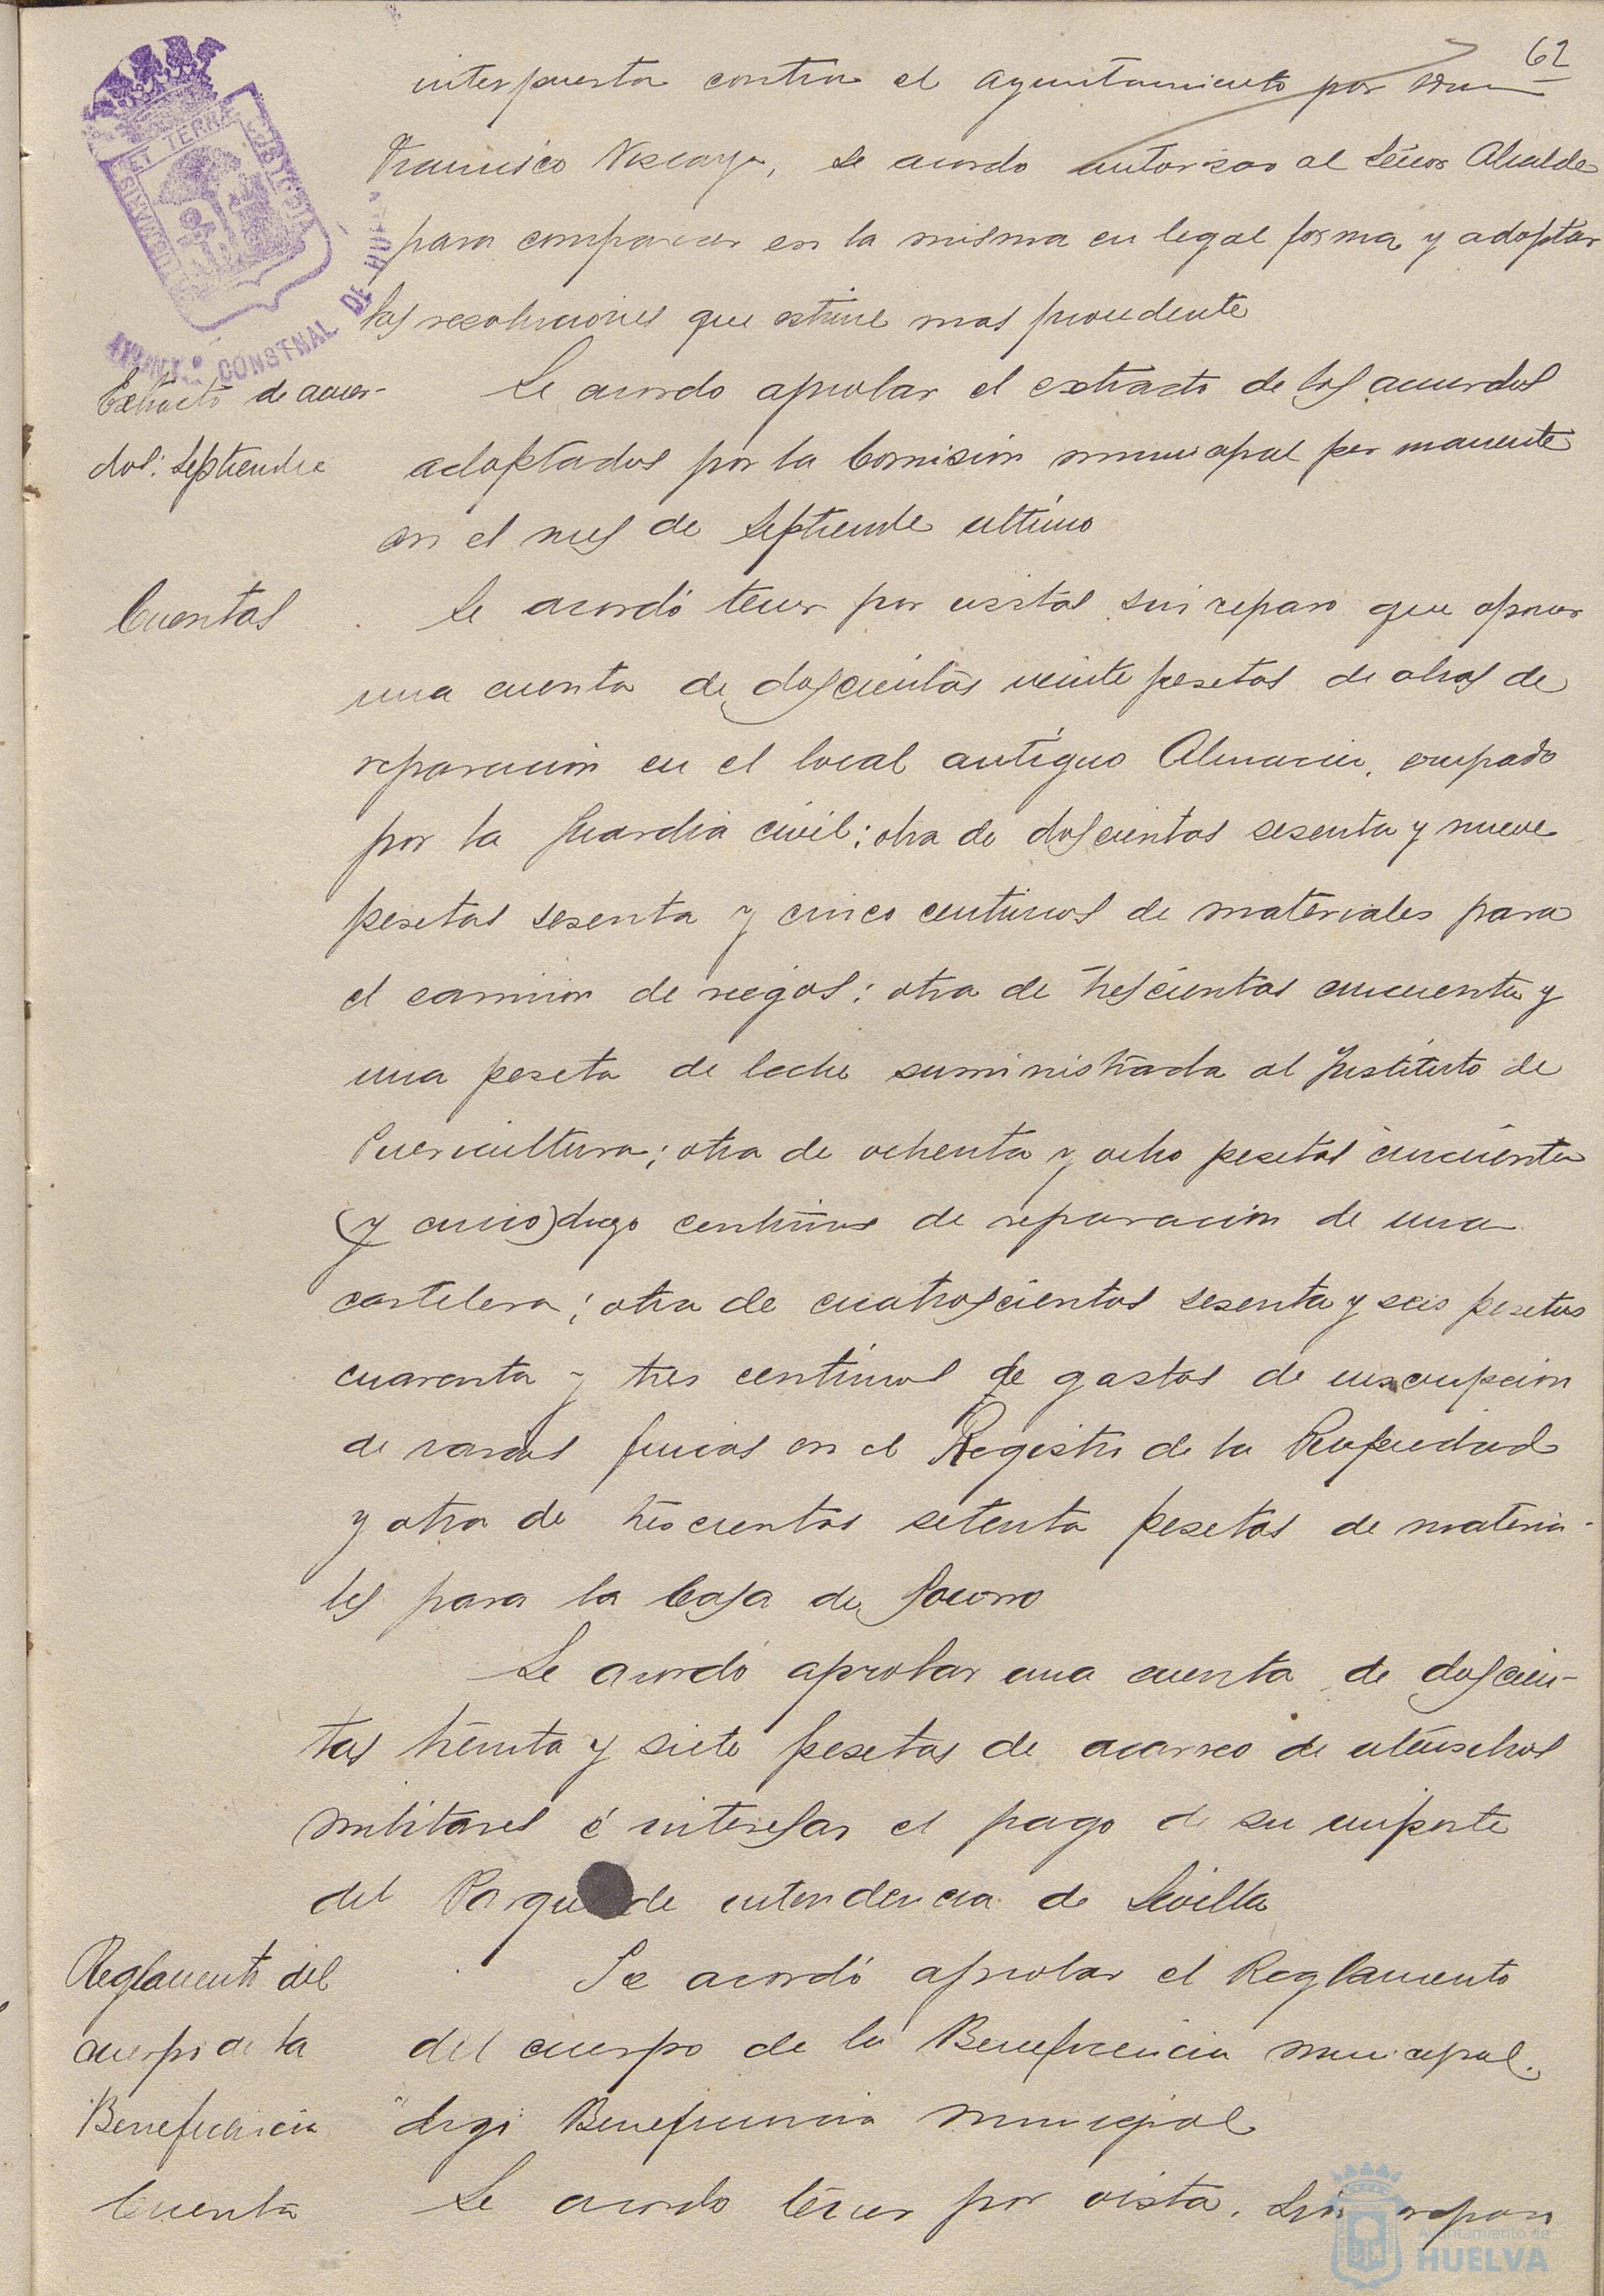 62
interpuesta contra el Ayuntamiento por Don
Francisco Vizcaya, se acordo autorizar al Señor Alcalde
para comparecer en la misma en legal forma y adoptar
las resoluciones que estime mas procedente
Extracto de acuer-
dos. Septiembre
Se acordo aprobar el extracto de los acuerdos
adoptados por la Comision municipal permanente
en el mes de Septiembre ultimo
Cuentas
Se acordó tener por vistas sin reparo que oponer
una cuenta de doscientas veinte pesetas de obras de
reparacion en el local antiguo Almacen, ocupado
por la Guardia civil; otra de doscientas sesenta y nueve
pesetas sesenta y cinco centimos de materiales para
el camion de riegos; otra de trescientas cincuenta y
una peseta de leche suministrada al Instituto de
Puericultura; otra de ochenta y ocho pesetas cincuenta
(y cinco) digo centimos de reparacion de una
cartelera; otra de cuatroscientas sesenta y seis pesetas
cuarenta y tres centimos de gastos de inscripcion
de varias fincas en el Registro de la Propiedad
y otra de trescientas setenta pesetas de materia-
les para la Casa de Socorro
Se acordó aprobar una cuenta de doscien-
tas treinta y siete pesetas de acarreo de utensilios
militares é interesar el pago de su importe
del Parque de intendencia de Sevilla
Reglamento del
cuerpo de la
Beneficencia
Se acordó aprobar el Reglamento
del cuerpo de la Beneficencia municipal.
digo Beneficencia municipal
Cuenta
Se acordo tener por vista, sin reparo
AYUNTº CONSTNAL DE HUELVA
PORTUS MARIS ET TERRAE CUSTODIA
Ayuntamiento de
HUELVA